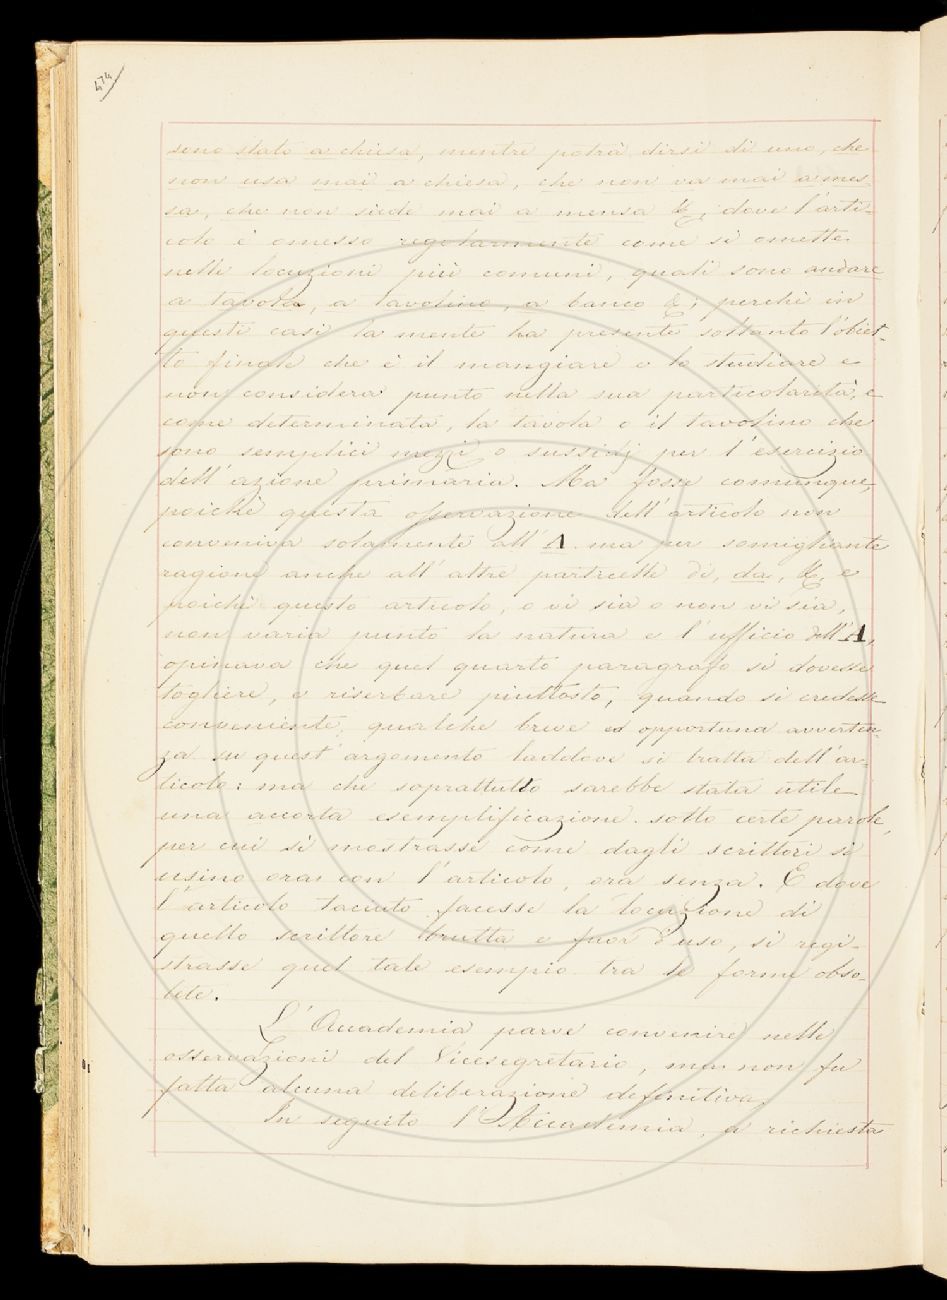 474
sono stato a chiesa, mentre potrà dirsi di uno, che
non usa mai a chiesa, che non va mai a mes-
sa, che non siede mai a mensa &; dove l'arti-
colo è omesso regolarmente come si omette
nelle locuzioni più comuni, quali sono andare
a tavola, a tavolino, a banco &; perchè in
questi casi la mente ha presente soltanto l'obiet-
to finale che è il mangiare o lo studiare e
non considera punto nella sua particolarità, e
come determinata, la tavola o il tavolino che
sono semplici mezzi o sussidj per l'esercizio
dell'azione primaria. Ma fosse comunque,
poichè questa osservazione dell'articolo non
conveniva solamente all'A ma per somigliante
ragione anche all'altre particelle di, da, &, e
poichè questo articolo, o vi sia o non vi sia,
non varia punto la natura e l'ufficio dell'A,
opinava che quel quarto paragrafo si dovesse
togliere, e riserbare piuttosto, quando si credesse
conveniente, qualche breve ed opportuna avverten-
za su quest'argomento laddove si tratta dell'ar-
ticolo: ma che soprattutto sarebbe stata utile
una accorta esemplificazione sotto certe parole,
per cui si mostrasse come dagli scrittori si
usino ora con l'articolo, ora senza. E dove
l'articolo taciuto facesse la locuzione di
quello scrittore brutta e fuor d'uso, si regi-
strasse quel tale esempio tra le forme obso-
lete.
L'Accademia parve convenire nelle
osservazioni del Vicesegretario, ma non fu
fatta alcuna deliberazione definitiva.
In seguito l'Accademia, a richiesta